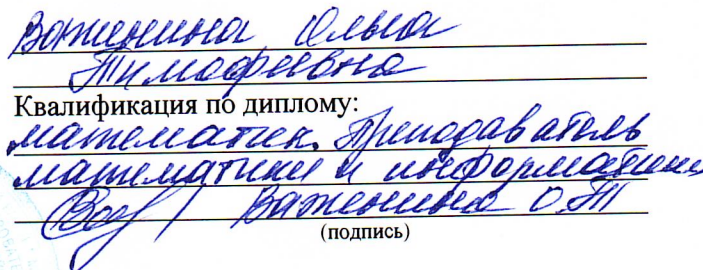 Важенина Ольга
Тимофеевна
Квалификация по диплому:
математик. Преподаватель
математики и информатики
Важенина О.Т
(подпись)